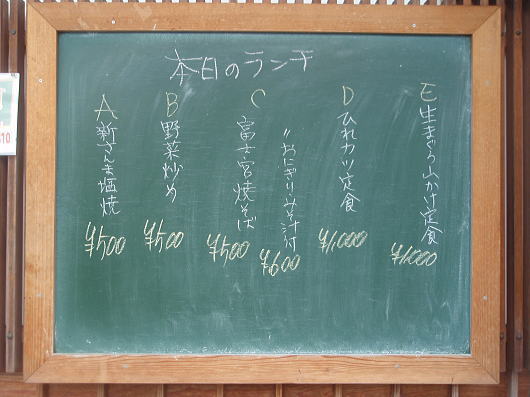 本日のランチ
A 新さんま塩焼
¥500
B 野菜炒め
¥500
C 富士宮焼そば
¥500
〃 おにぎり、みそ汁付
¥600
D ひれカツ定食
¥1,000
E 生まぐろ山かけ定食
¥1,000